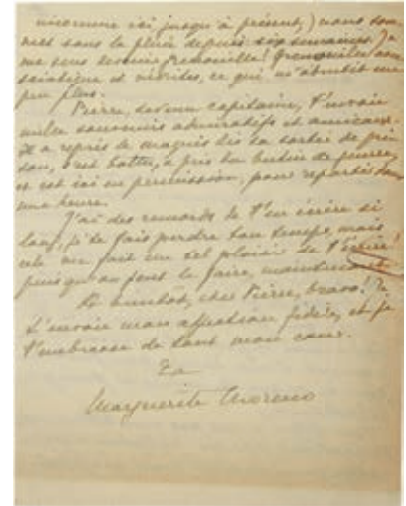 ici jusqu'à présent,) nous som-
mes sous la pluie depuis six semaines. Je
me sens devenir grenouille! Grenouille avec
sciatique et névrites, ce qui m'abrutit un
peu plus.
Pierre, devenu capitaine, t'envoie
mille souvenirs admiratifs et amicaux.
Il a repris le maquis dès sa sortie de pri-
son, s'est battu, a pris du butin de guerre,
et est ici en permission, pour repartir dans
une heure.
J'ai des remords de t'en écrire si
long, je te fais perdre ton temps, mais
cela me fait un tel plaisir de t'écrire!
puisqu'on peut le faire, maintenant.
A bientôt, cher Pierre, bravo! Je
t'envoie mon affection fidèle, et je
t'embrasse de tout mon cœur.
Ta
Marguerite Moreno